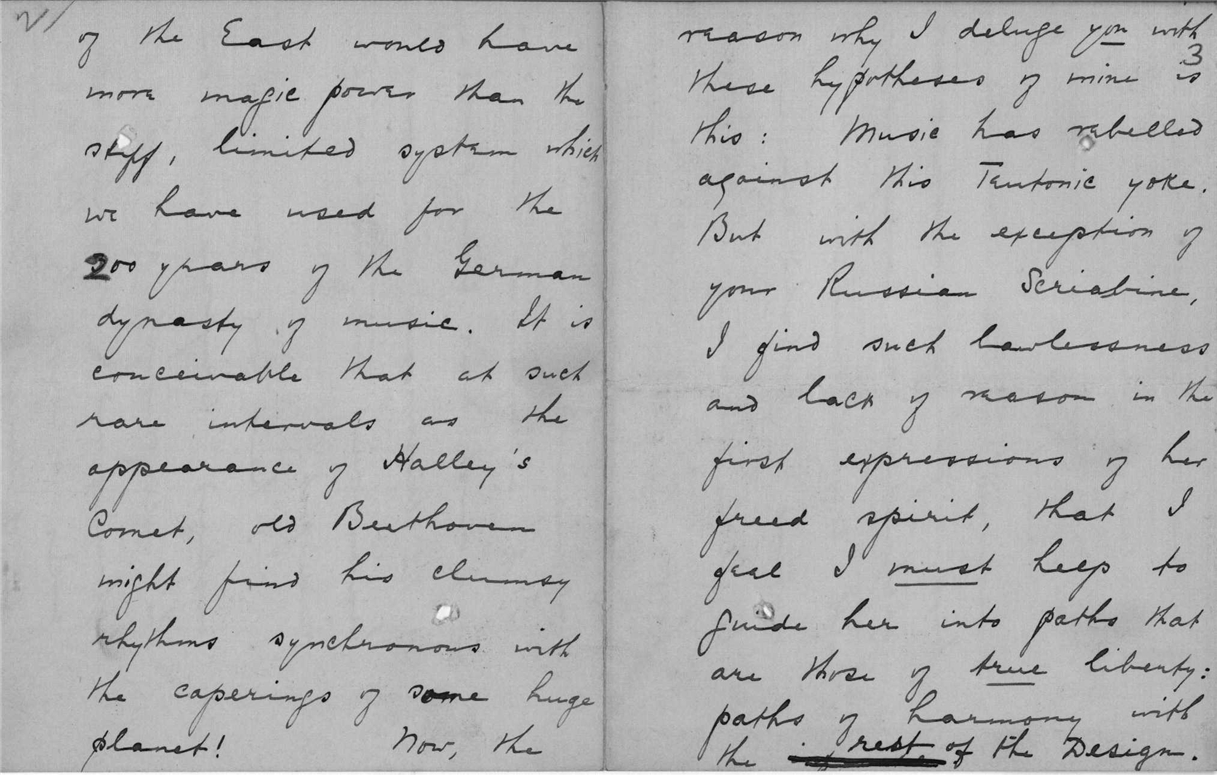 2/
of the East would have
more magic power than the
stiff, limited system which
we have used for the
200 years of the German
dynasty of music. It is
conceivable that at such
rare intervals as the
appearance of Halley's
Comet, old Beethoven
might find his clumsy
rhythms synchronous with
the caperings of some huge
planet! Now, the
3
reason why I deluge you with
these hypotheses of mine is
this: Music has rebelled
against this Teutonic yoke.
But with the exception of
your Russian Scriabine,
I find such lawlessness
and lack of reason in the
first expressions of her
freed spirit, that I
feel I must help to
guide her into paths that
are those of true liberty:
paths of harmony with
the rest of the Design.